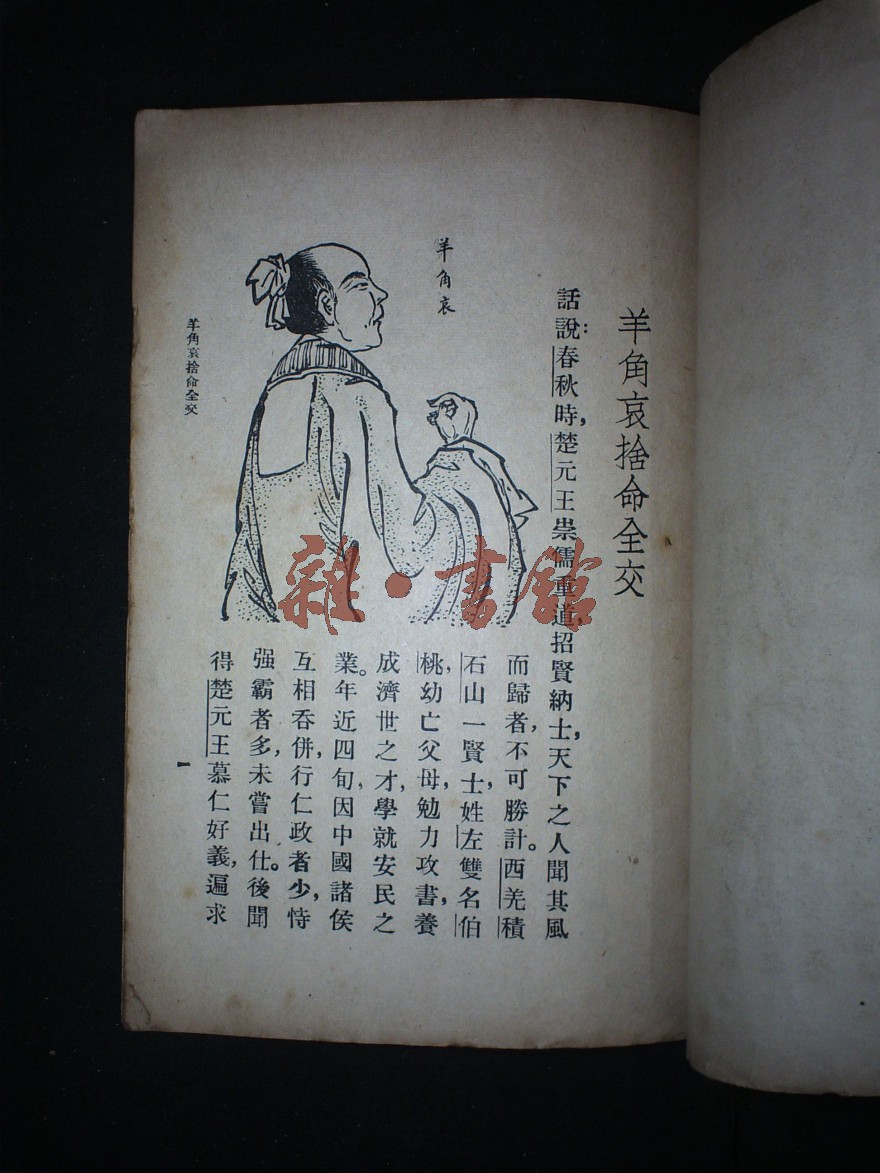 羊角哀捨命全交
話說：春秋時，楚元王崇儒重道，招賢納士，天下之人聞其風
而歸者，不可勝計。西羌積
石山一賢士，姓左雙名伯
桃，幼亡父母，勉力攻書，養
成濟世之才，學就安民之
業。年近四旬，因中國諸侯
互相吞併，行仁政者少，恃
强霸者多，未嘗出仕。後聞
得楚元王慕仁好義，遍求
羊角哀
羊角哀捨命全交
一
雜·書館